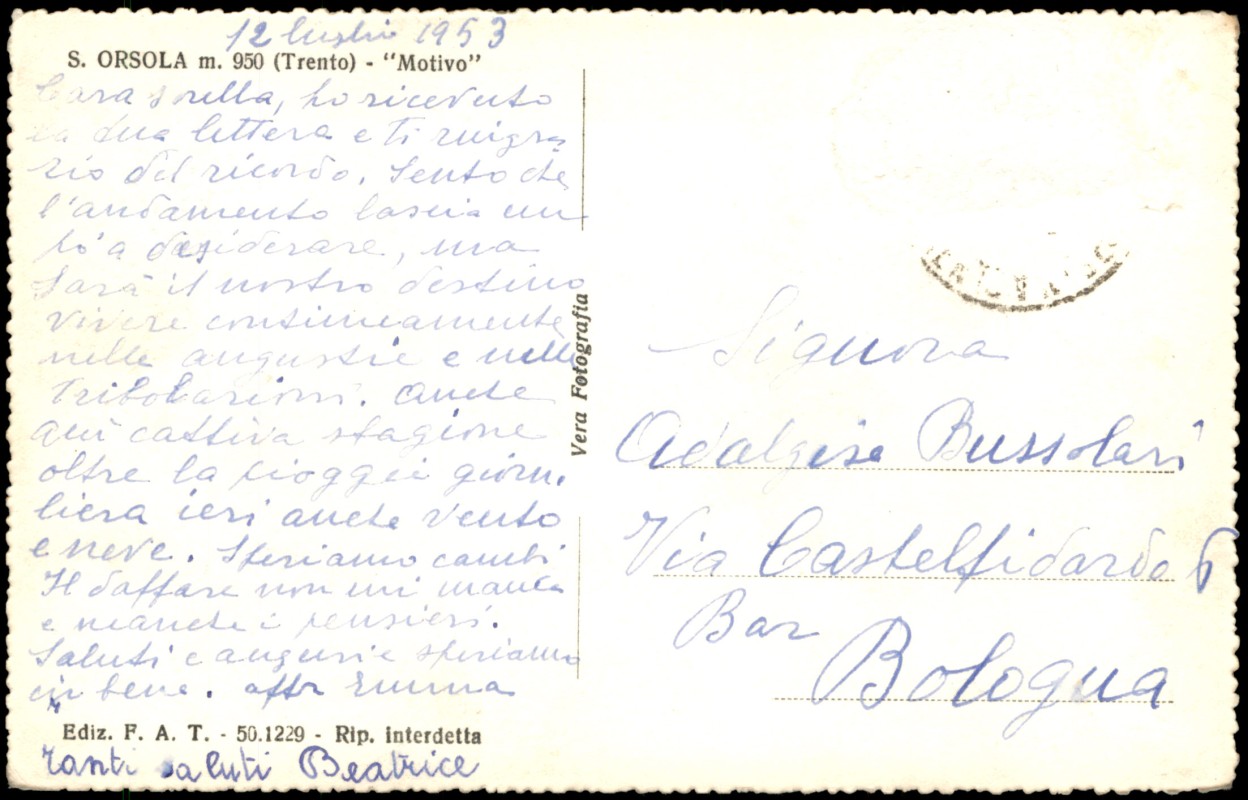 12 luglio 1953
S. ORSOLA m. 950 (Trento) - "Motivo"
Cara sorella, ho ricevuto
la tua lettera e ti ringra
zio del ricordo. Sento che
l'andamento lascia un
po' a desiderare, ma
sarà il nostro destino
vivere continuamente
nelle angustie e nelle
tribolazioni. Anche
qui cattiva stagione
oltre la pioggia giorn.
liera ieri anche vento
e neve. Speriamo cambi
Il daffare non mi manca
e neanche i pensieri.
Saluti e auguri e speriamo
in bene. aff Emma
Ediz. F. A. T. - 50.1229 - Rip. interdetta
Tanti saluti Beatrice
Vera Fotografia
Signora
Adalgisa Bussolari
Via Castelfidardo 6
Bar
Bologna